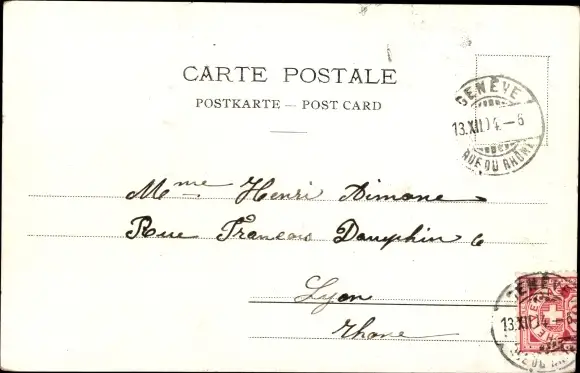 CARTE POSTALE
POSTKARTE — POST CARD
GENÈVE
13.XII.04.–5
RUE DU RHÔNE
Mme Henri Aimone
Rue François Dauphin 6
Lyon
Rhone
GENÈVE
13.XII.04.–5
RUE DU RHÔ